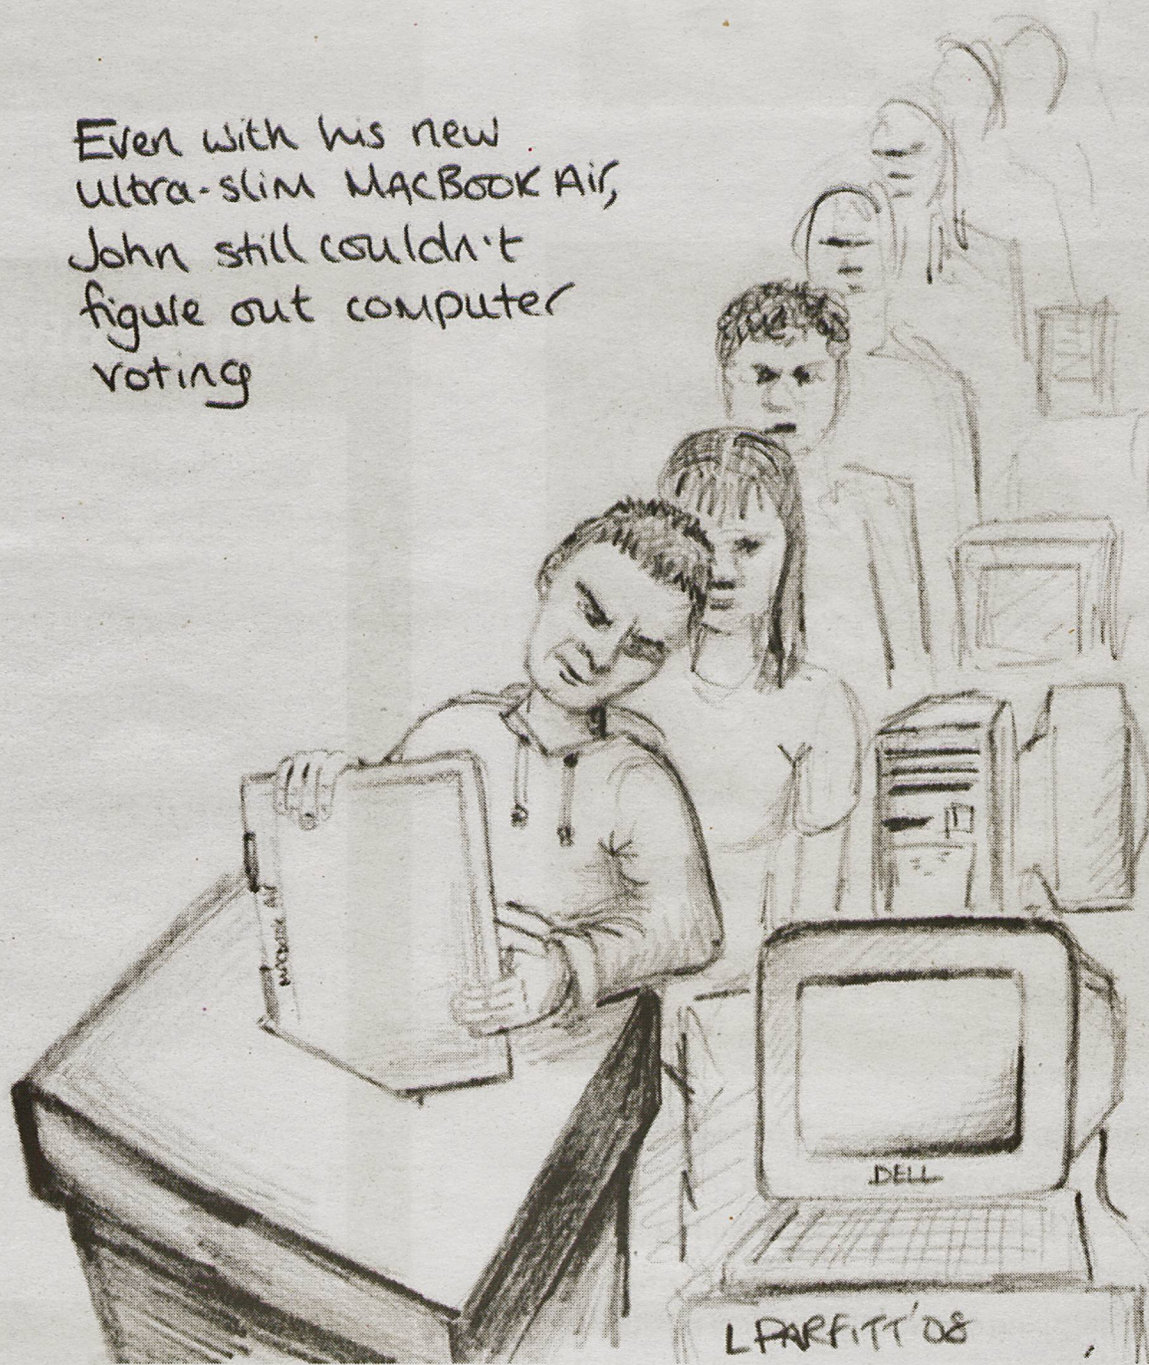 Even with his new
ultra-slim MacBook Air,
John still couldn't
figure out computer
voting
MacBook Air
DELL
L PARFITT '08